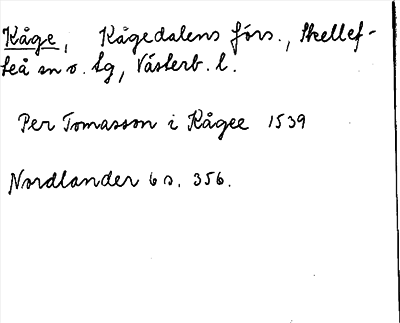 Kåge, Kågedalens förs., Skellef-
teå sn o. tg, Västerb. l.
Per Tomasson i Kågee 1539
Nordlander 6 s. 356.